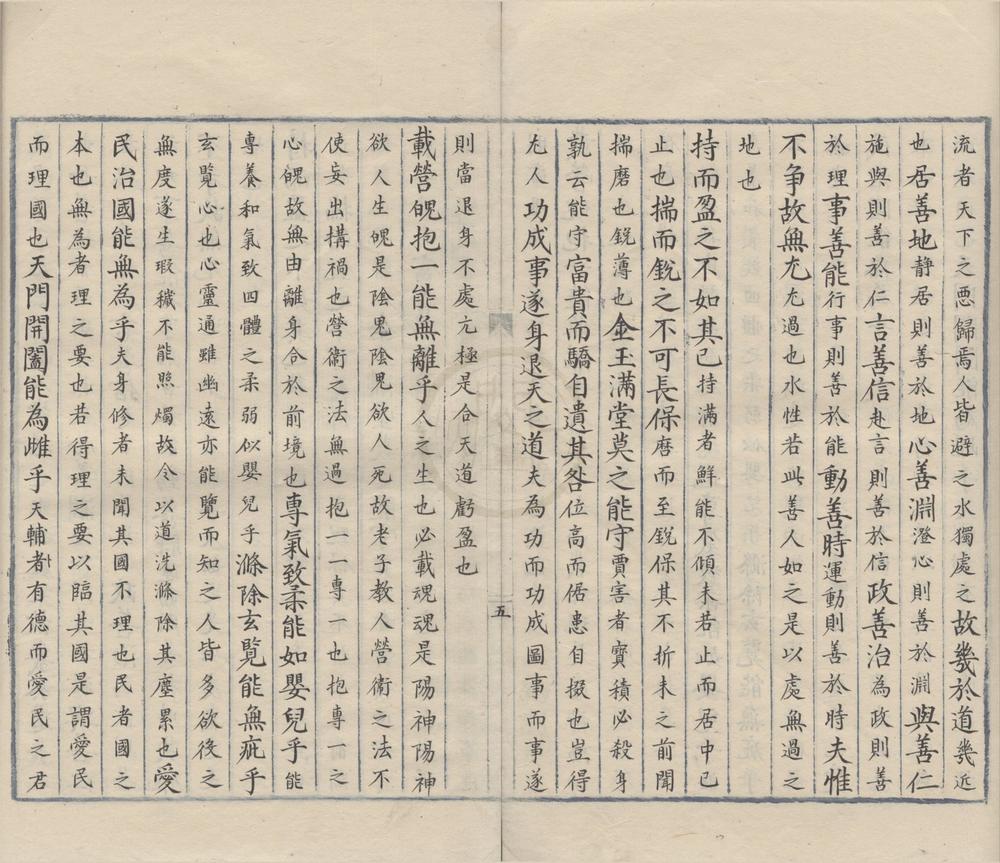 流者天下之惡歸焉人皆避之水獨處之故幾於道幾近
也居善地静居則善於地心善淵澄心則善於淵與善仁
施與則善於仁言善信赴言則善於信政善治為政則善
於理事善能行事則善於能動善時運動則善於時夫惟
不争故無尤尤過也水性若此善人如之是以處無過之
地也
持而盈之不如其已持滿者鮮能不傾未若止而居中已
止也揣而銳之不可長保磨而至銳保其不折未之前聞
揣磨也銳薄也金玉滿堂莫之能守賈害者寶積必殺身
孰云能守富貴而驕自遺其咎位高而倨患自掇也豈得
尤人功成事遂身退天之道夫為功而功成圖事而事遂
五
則當退身不處亢極是合天道虧盈也
載營魄抱一能無離乎人之生也必載魂魂是陽神陽神
欲人生魄是陰鬼陰鬼欲人死故老子教人營衛之法不
使妄出搆禍也營衛之法無過抱一一專一也抱專一之
心魄故無由離身合於前境也專氣致柔能如嬰兒乎能
專養和氣致四體之柔弱似嬰兒乎滌除玄覽能無疵乎
玄覽心也心靈通雖幽遠亦能覽而知之人皆多欲後之
無度遂生瑕穢不能照燭故令以道洗滌除其塵累也愛
民治國能無為乎夫身修者未聞其國不理也民者國之
本也無為者理之要也若得理之要以臨其國是謂愛民
而理國也天門開闔能為雌乎天輔者有德而愛民之君